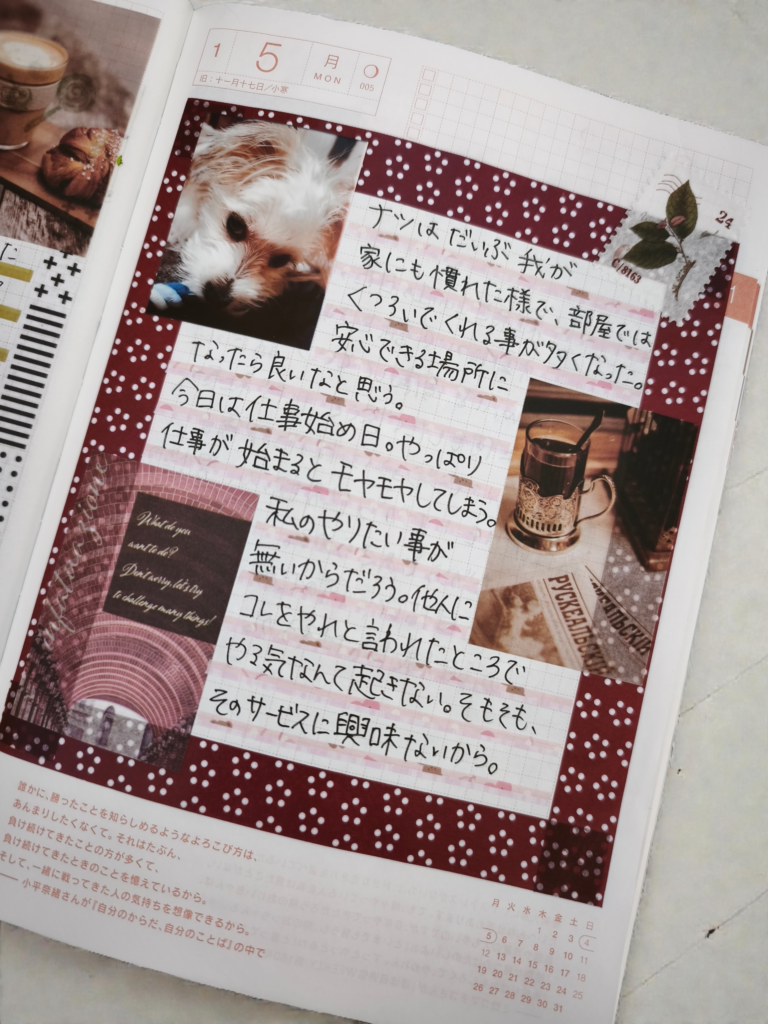 1 5 月 MON 005
旧：十一月十七日／小寒
24
C/8163
1
ナツは だいぶ 我が
家にも慣れた様で、部屋では
くつろいでくれる事が多くなった。
安心できる場所に
なったら良いなと思う。
今日は仕事始め日。やっぱり
仕事が始まるとモヤモヤしてしまう。
私のやりたい事が
無いからだろう。他人に
コレをやれと言われたところで
やる気なんて起きない。そもそも、
そのサービスに興味ないから。
What do you
want to do?
Don't worry, let's try
to challenge many things!
誰かに、勝ったことを知らしめるようなよろこび方は、
あんまりしたくなくて。それはたぶん、
負け続けてきたことの方が多くて、
負け続けてきたときのことを憶えているから。
そして、一緒に戦ってきた人の気持ちを想像できるから。
── 小平奈緒さんが『自分のからだ、自分のことば』の中で
月 火 水 木 金 土 日
1 2 3 4
5 6 7 8 9 10 11
12 13 14 15 16 17 18
19 20 21 22 23 24 25
26 27 28 29 30 31